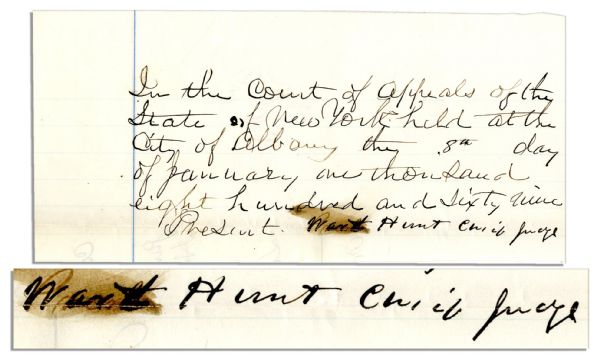 In the Court of Appeals of the
State of New York held at the
City of Albany the 8th day
of January one thousand
eight hundred and Sixty nine
Present. Ward Hunt Chief Judge
Ward Hunt Chief Judge